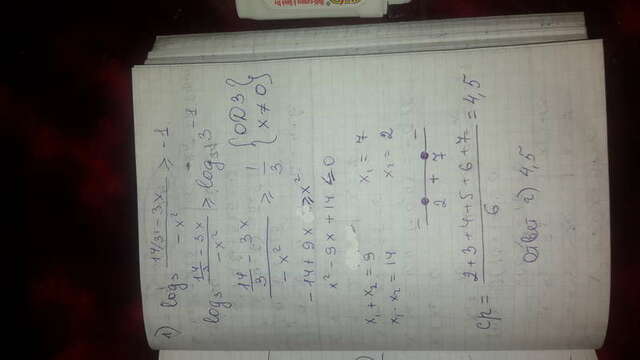 1) log₃ (14/3 - 3x)/(-x²) ≥ -1
log₃ (14/3 - 3x)/(-x²) ≥ log₃ 3⁻¹
(14/3 - 3x)/(-x²) ≥ 1/3 { ОДЗ x ≠ 0 }
-14 + 9x ≥ x²
x² - 9x + 14 ≤ 0
x₁ + x₂ = 9 x₁ = 7
x₁ · x₂ = 14 x₂ = 2
- + -
2 7
ср = (2+3+4+5+6+7)/6 = 4,5
Ответ 2) 4,5